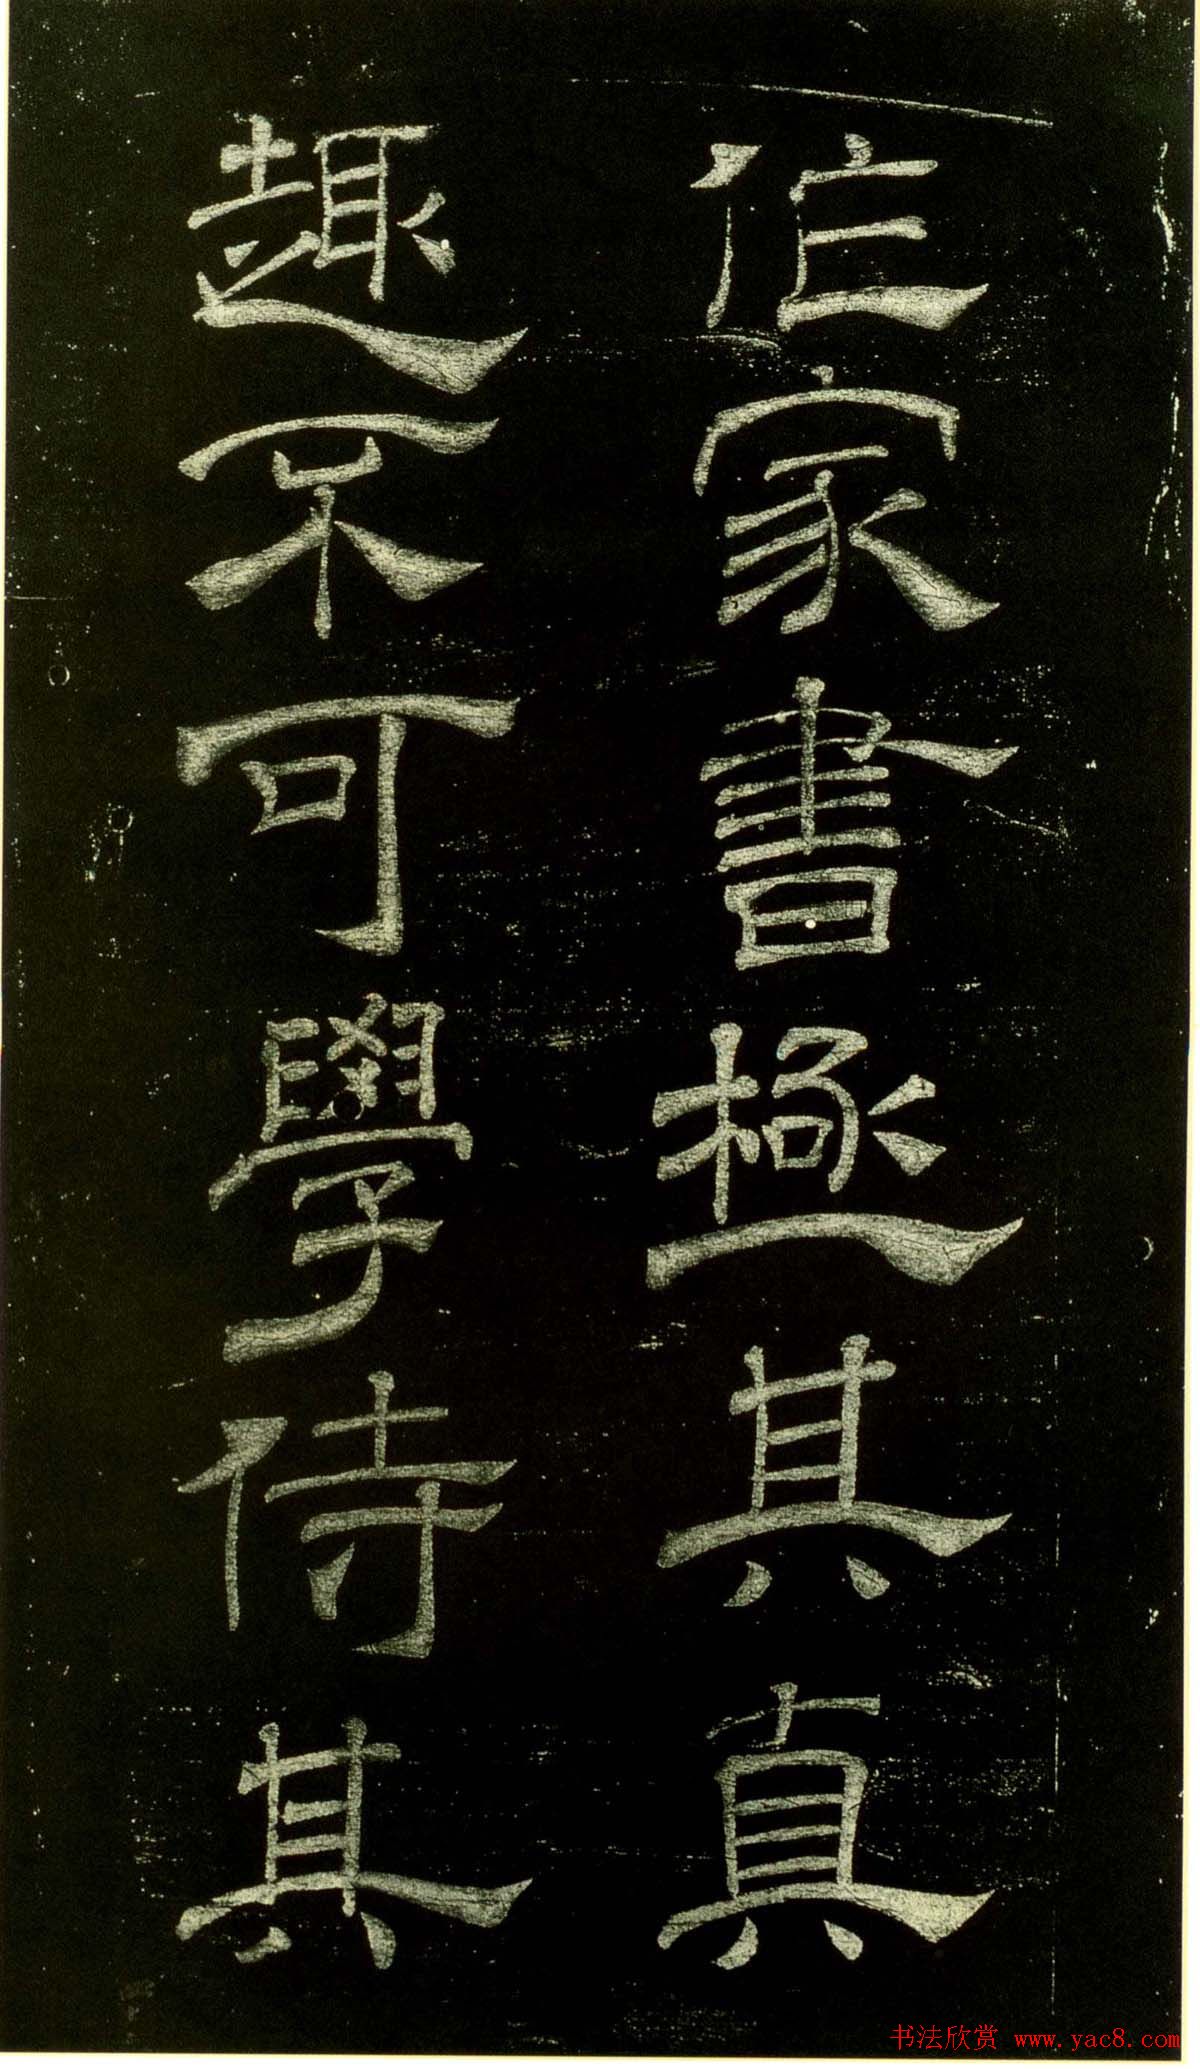 作家書極其真
趣不可學侍其
书法欣赏 www.yac8.com